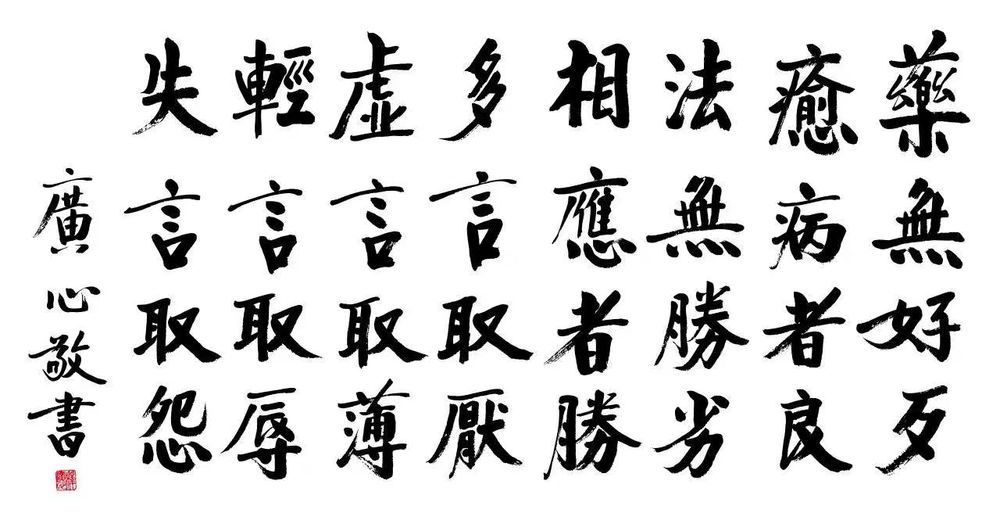 藥無好歹
癒病者良
法無勝劣
相應者勝
多言取厭
虛言取薄
輕言取辱
失言取怨
廣心敬書